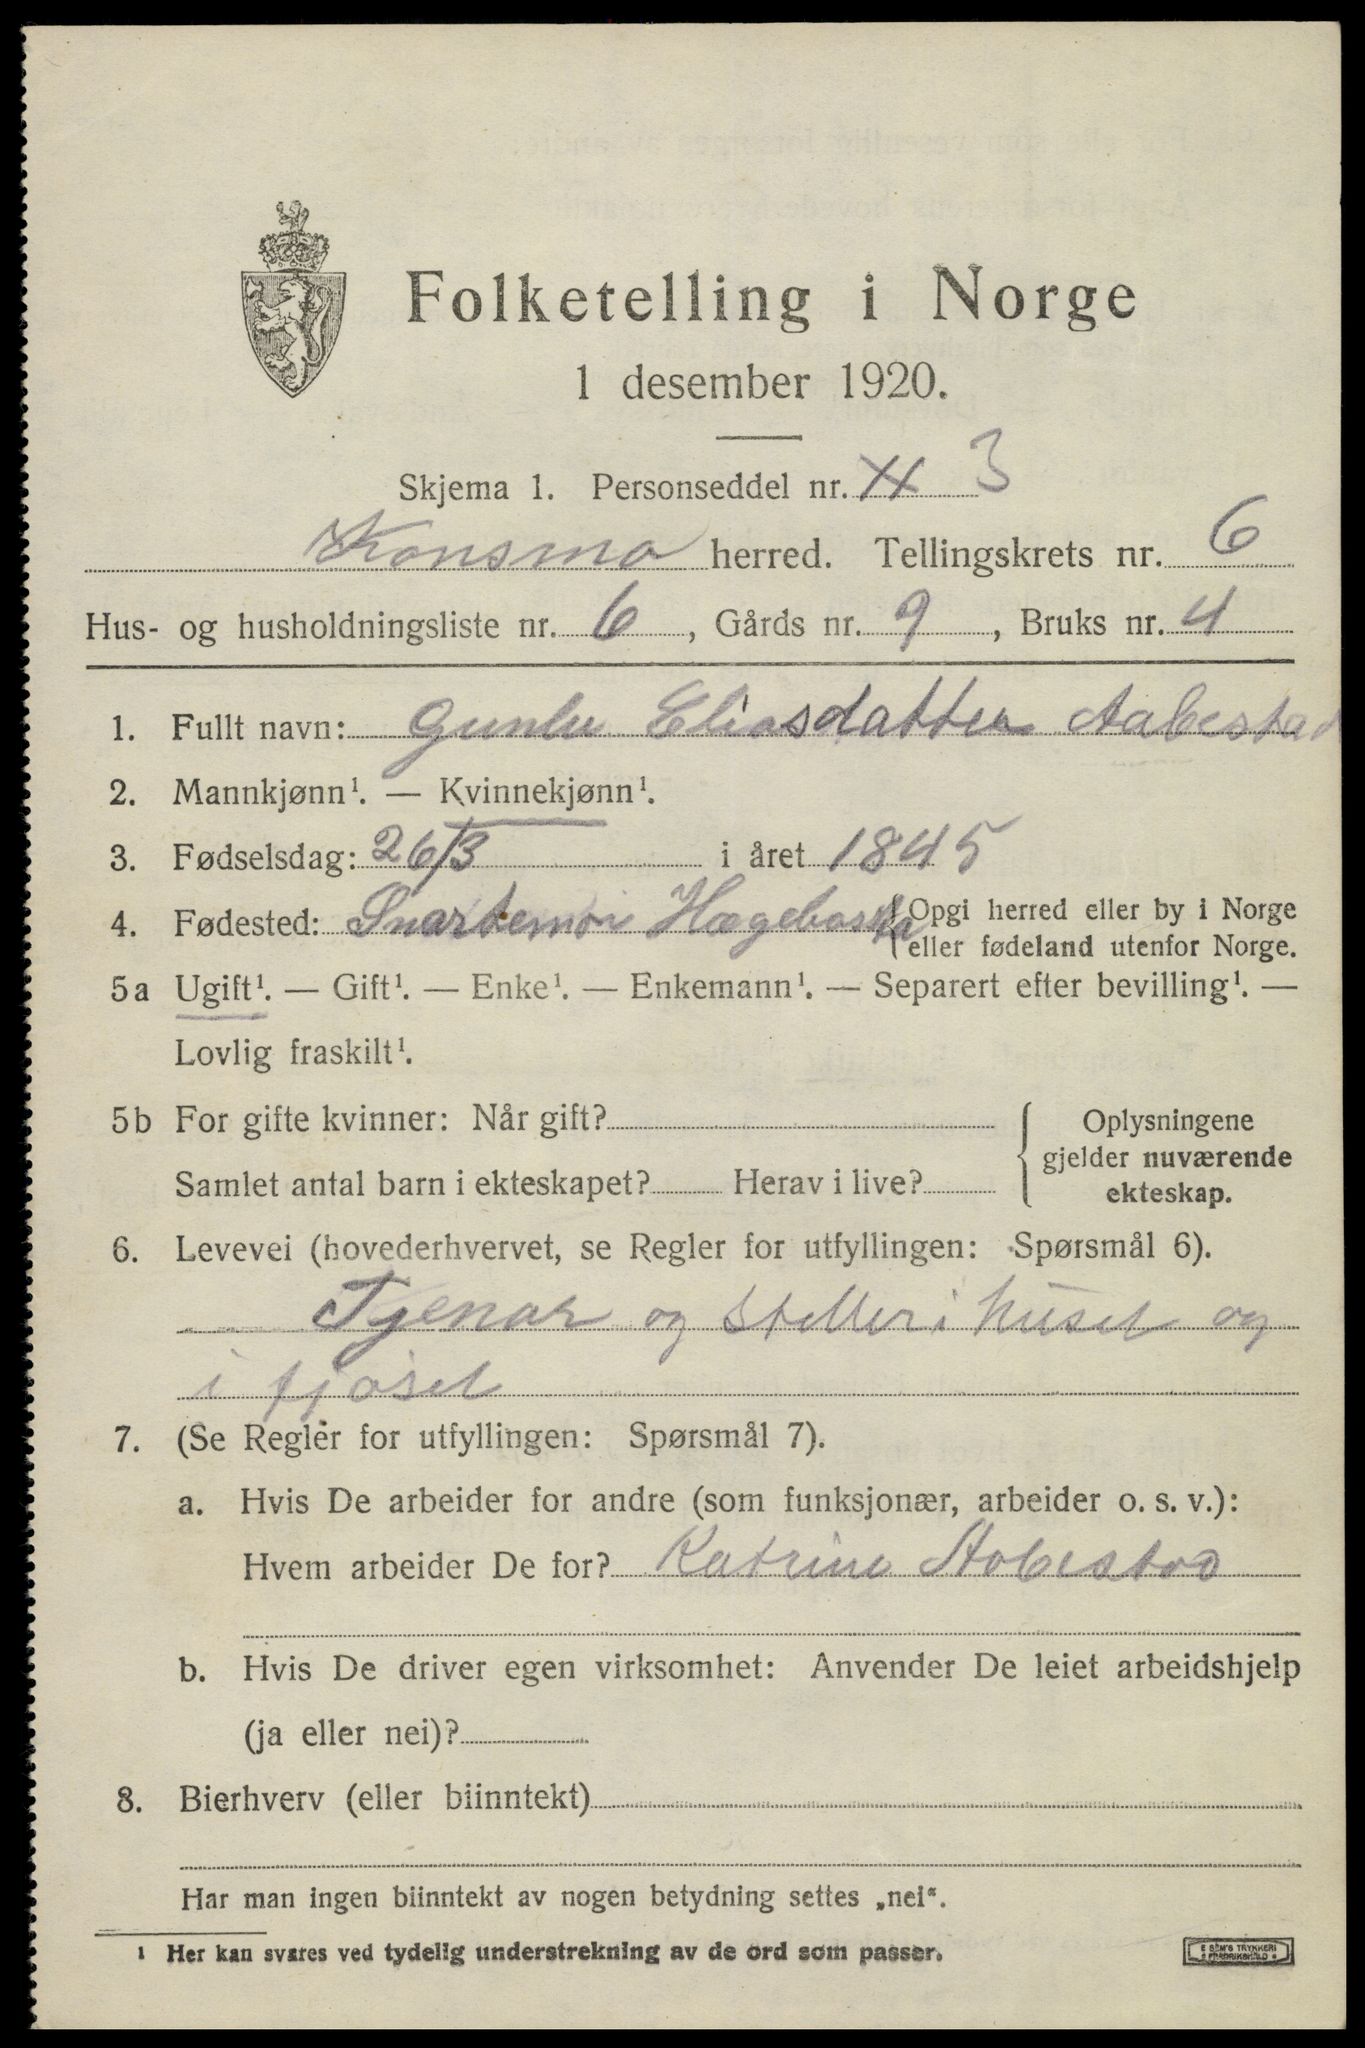 Folketelling i Norge
1 desember 1920.
Skjema 1. Personseddel nr. 3
Konsmo herred. Tellingskrets nr. 6
Hus- og husholdningsliste nr. 6, Gårds nr. 9, Bruks nr. 4
1. Fullt navn: Gunlu Eliasdatter Aabestad
2. Mannkjønn¹. — Kvinnekjønn¹.
3. Fødselsdag: 26/3 i året 1845
4. Fødested: Snartemo Hægebostad {Opgi herred eller by i Norge
eller fødeland utenfor Norge.
5a Ugift¹. — Gift¹. — Enke¹. — Enkemann¹. — Separert efter bevilling¹. —
Lovlig fraskilt¹.
5b For gifte kvinner: Når gift?
Samlet antal barn i ekteskapet? Herav i live?
Oplysningene
gjelder nuværende
ekteskap.
6. Levevei (hovederhvervet, se Regler for utfyllingen: Spørsmål 6).
Tjenar og steller i huset og
i fjøset
7. (Se Regler for utfyllingen: Spørsmål 7).
a. Hvis De arbeider for andre (som funksjonær, arbeider o. s. v.):
Hvem arbeider De for? Katrine Aabestad
b. Hvis De driver egen virksomhet: Anvender De leiet arbeidshjelp
(ja eller nei)?
8. Bierhverv (eller biinntekt)
Har man ingen biinntekt av nogen betydning settes „nei“.
¹ Her kan svares ved tydelig understrekning av de ord som passer.
E SEM'S TRYKKERI
FREDRIKSHALD